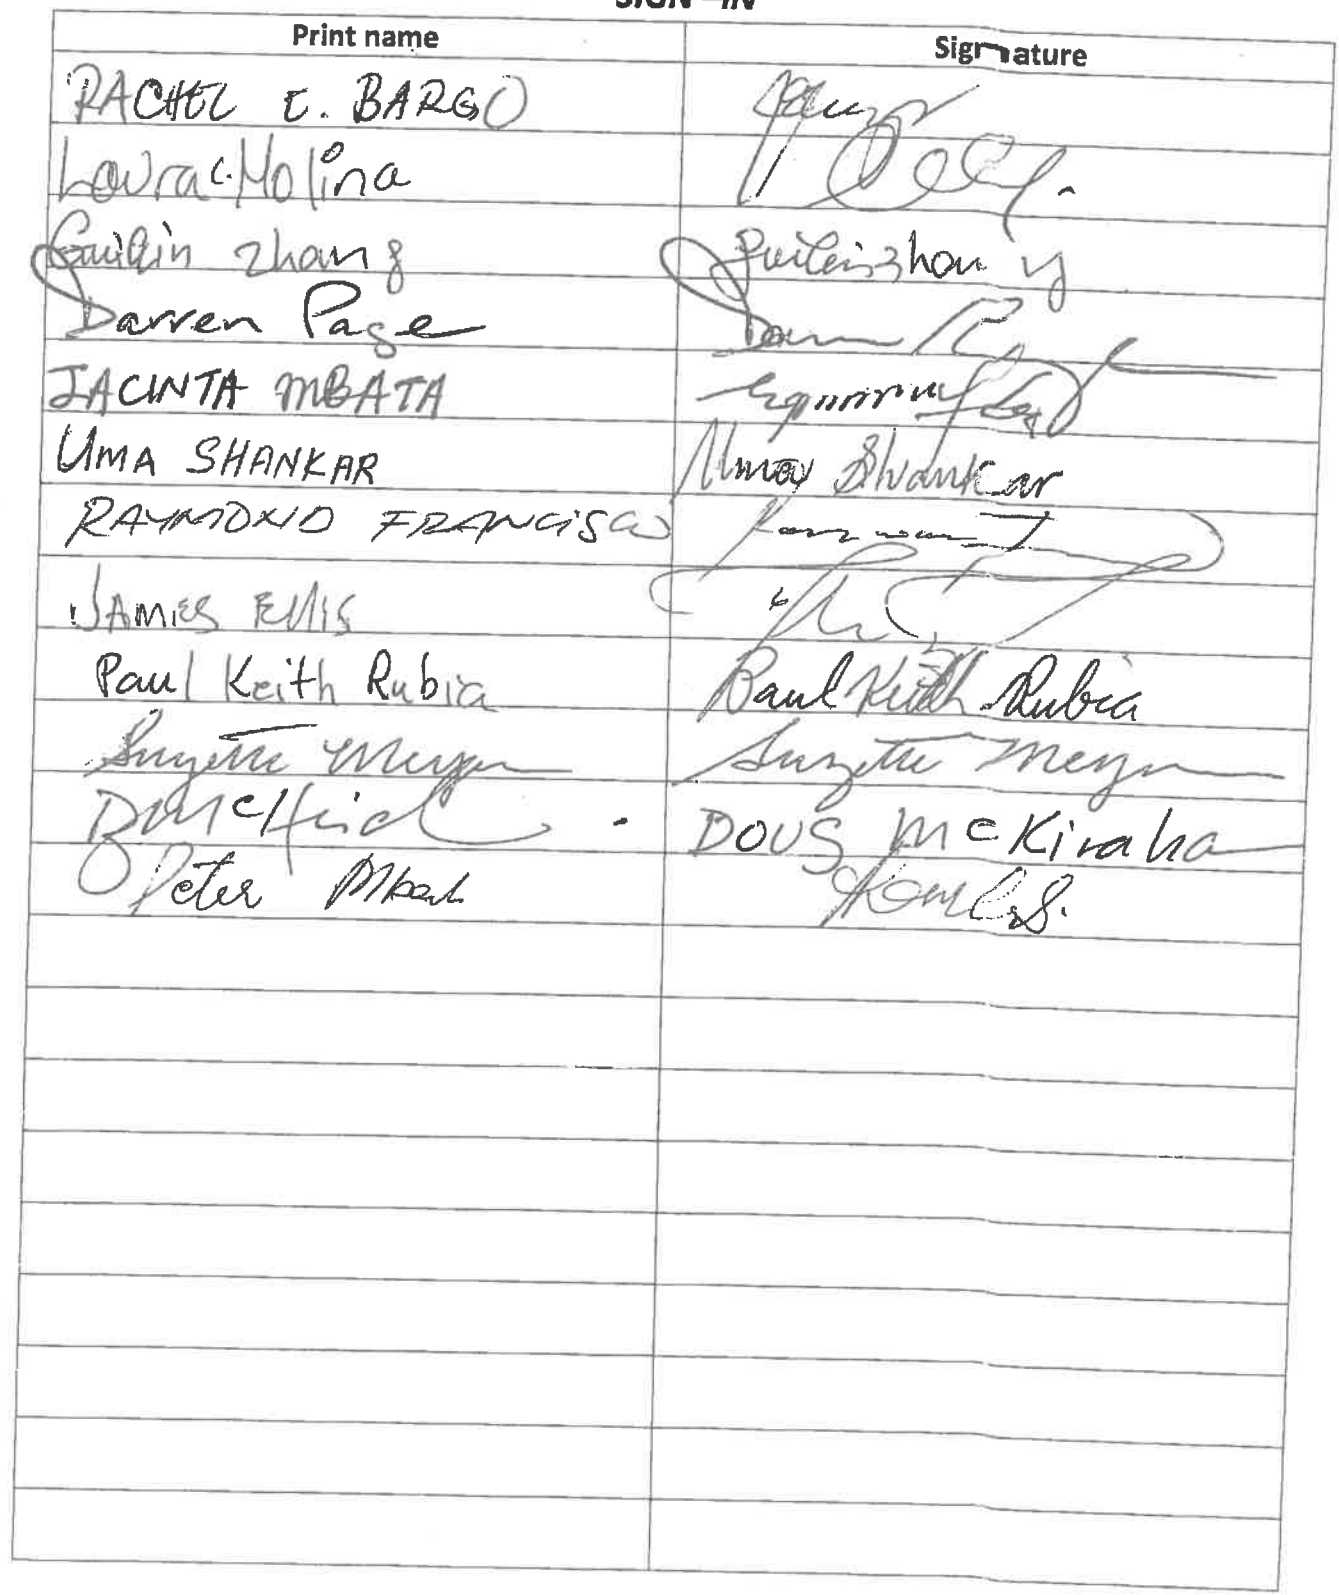 SIGN-IN
Print name Signature
RACHEL E. BARGO
Laura C. Molina
Guilin Zhang Guilin Zhang
Darren Page
JACINTA MBATA
UMA SHANKAR Uma Shankar
RAYMOND FRANCISCO
JAMES Ellis
Paul Keith Rubia Paul Keith Rubia
Suzette Meyer Suzette Meyer
DOUG McKinaha
Peter